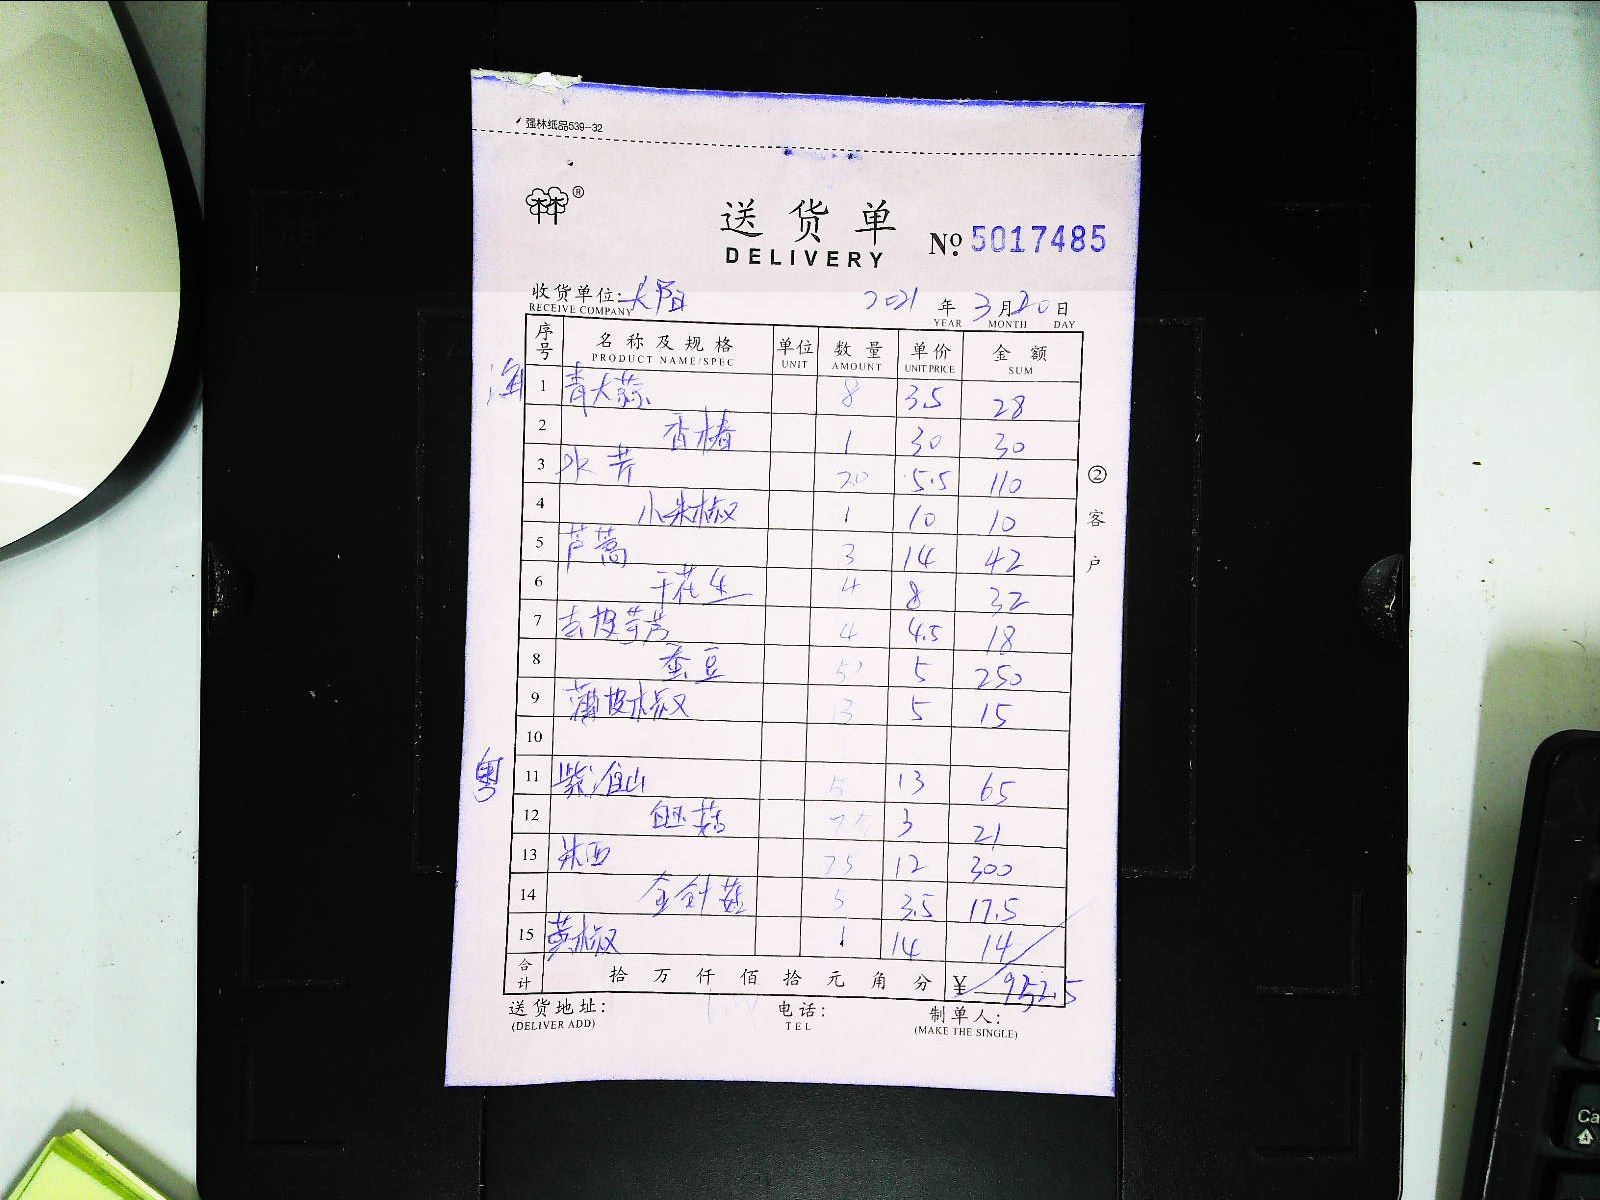 强林纸品539-32
林 ®
送货单 № 5017485
DELIVERY
收货单位: 大阳 2021 年 3 月 20 日
RECEIVE COMPANY YEAR MONTH DAY
序号 名称及规格 单位 数量 单价 金额
PRODUCT NAME/SPEC UNIT AMOUNT UNIT PRICE SUM
海 1 青大蒜 8 3.5 28
2 香椿 1 30 30
3 水芹 20 5.5 110
4 小米椒 1 10 10
5 芦蒿 3 14 42
6 干花生 4 8 32
7 去皮芋艿 4 4.5 18
8 蚕豆 50 5 250
9 薄皮椒 3 5 15
10
粤 11 紫淮山 5 13 65
12 白玉菇 3 21
13 朱西 25 12 300
14 金针菇 5 3.5 17.5
15 黄椒 1 14 14
合计 拾 万 仟 佰 拾 元 角 分 ¥ 952.5
送货地址: 电话: 制单人:
(DELIVER ADD) TEL (MAKE THE SINGLE)
② 客户
Ca